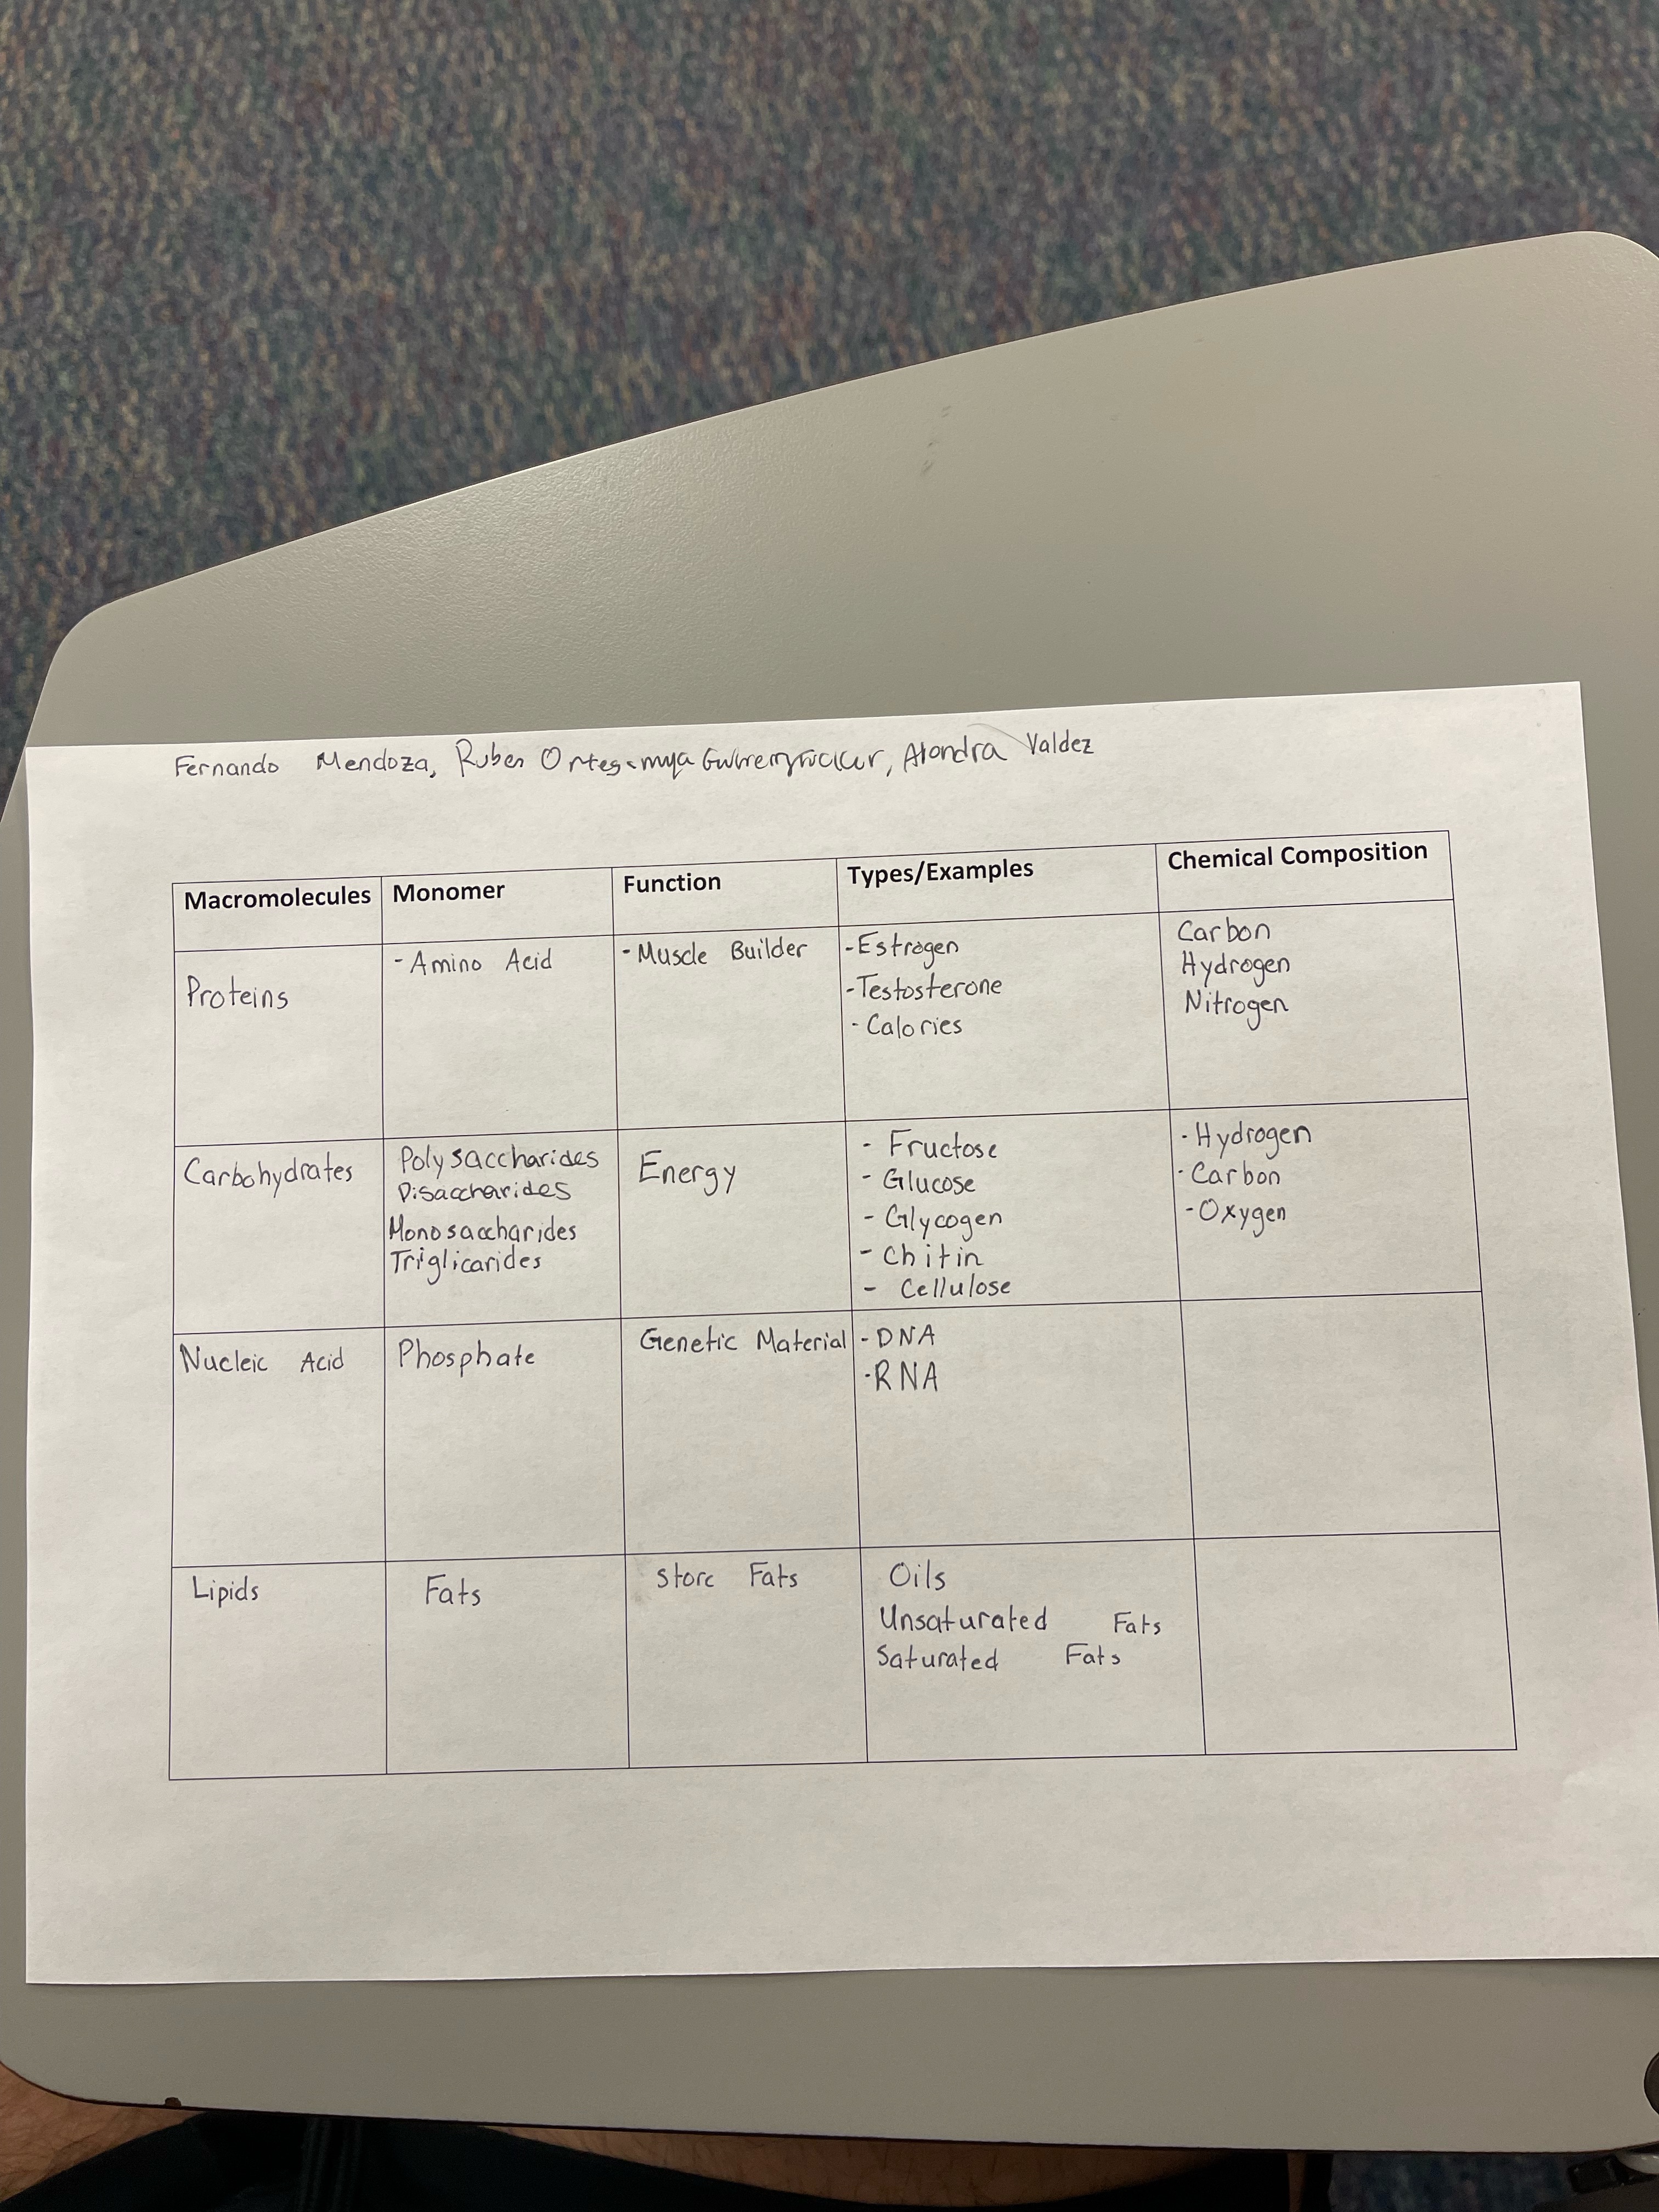 Fernando Mendoza, Ruben Ortega Alondra Valdez
Macromolecules Monomer Function Types/Examples Chemical Composition
Proteins
- Amino Acid
- Muscle Builder
- Estrogen
- Testosterone
- Calories
Carbon
Hydrogen
Nitrogen
Carbohydrates
Polysaccharides
Disaccharides
Monosaccharides
Triglicarides
Energy
- Fructose
- Glucose
- Glycogen
- Chitin
- Cellulose
- Hydrogen
- Carbon
- Oxygen
Nucleic Acid
Phosphate
Genetic Material
- DNA
- RNA
Lipids
Fats
Store Fats
Oils
Unsaturated Fats
Saturated Fats